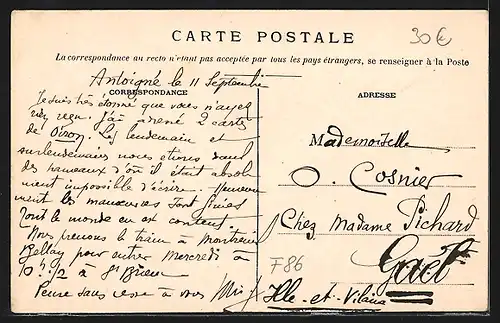 CARTE POSTALE
30€
La correspondance au recto n'étant pas acceptée par tous les pays étrangers, se renseigner à la Poste
CORRESPONDANCE
ADRESSE
Antoigné le 11 Septembre
Je suis très étonné que vous n'ayez
rien reçu. J'ai 2 cartes
de Oiron. Les lendemain et
surlendemain nous étions dans
des hameaux d'où il était absolu
ment impossible d'écrire. Heureuse
ment les manœuvres sont finies
Tout le monde en est content
Nous prenons le train à Montreuil
Bellay pour entrer Mercredi à
10h 1/2 à St Brieuc
Pense sans cesse à vous
Mademoiselle
O. Cosnier
Chez Madame Pichard
Gaël
Ille-et-Vilaine
F86